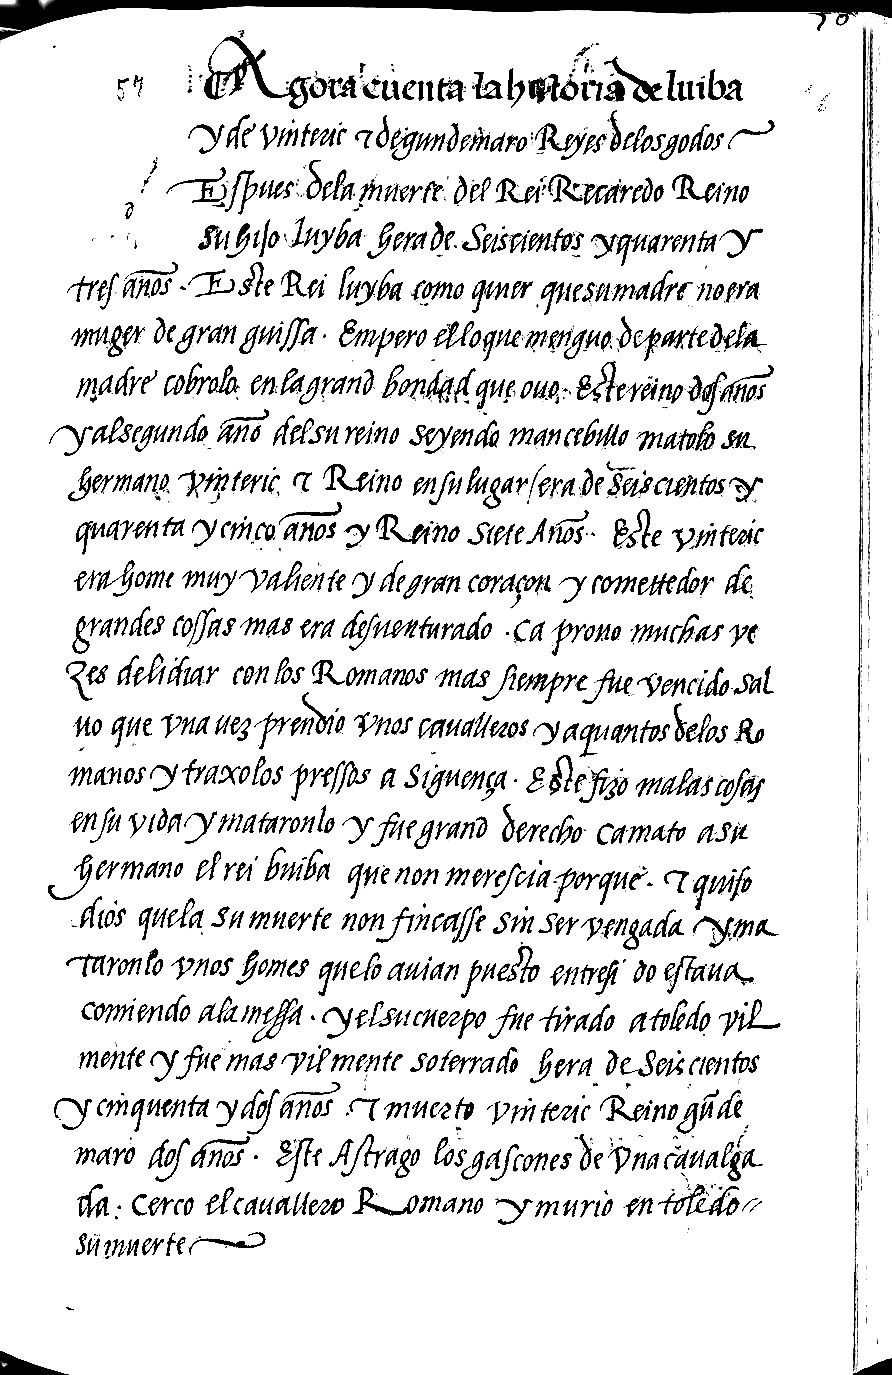 57
Agora cuenta la historia de luiba
y de vinteric τ de gundemaro Reyes delos godos
Espues dela muerte del Rei Recaredo Reino
su hijo luyba hera de seiscientos y quarenta y
tres años. Este Rei luyba como quier que su madre no era
muger de gran guissa. Empero ello que menguo de parte dela
madre cobrolo en la grand bondad que ouo. Este reino dos años
y al segundo año del su reino seyendo mancebillo matolo su
hermano vinteric τ Reino en su lugar era de seiscientos y
quarenta y cinco años y Reino siete Años. Este vinteric
era home muy valiente y de gran coraçon y comettedor de
grandes cossas mas era desuenturado. Ca prouo muchas ve
zes de lidiar con los Romanos mas siempre fue vencido sal
uo que vna uez prendio vnos caualleros y a quantos delos Ro
manos y traxolos pressos a Siguença. Este fizo malas cosas
en su vida y mataronlo y fue grand derecho ca mato a su
hermano el rei buiba que non merescia porque. τ quiso
dios que la su muerte non fincasse sin ser vengada y ma
taronlo vnos homes que lo auian puesto entresi do estaua
comiendo ala messa. y el su cuerpo fue tirado a toledo vil
mente y fue mas vilmente soterrado hera de seiscientos
y cinquenta y dos años. τ muerto vinteric Reino gũde
maro dos años. Este Astrago los gascones de vna caualga
da: cerco el cauallero Romano y murio en toledo
su muerte